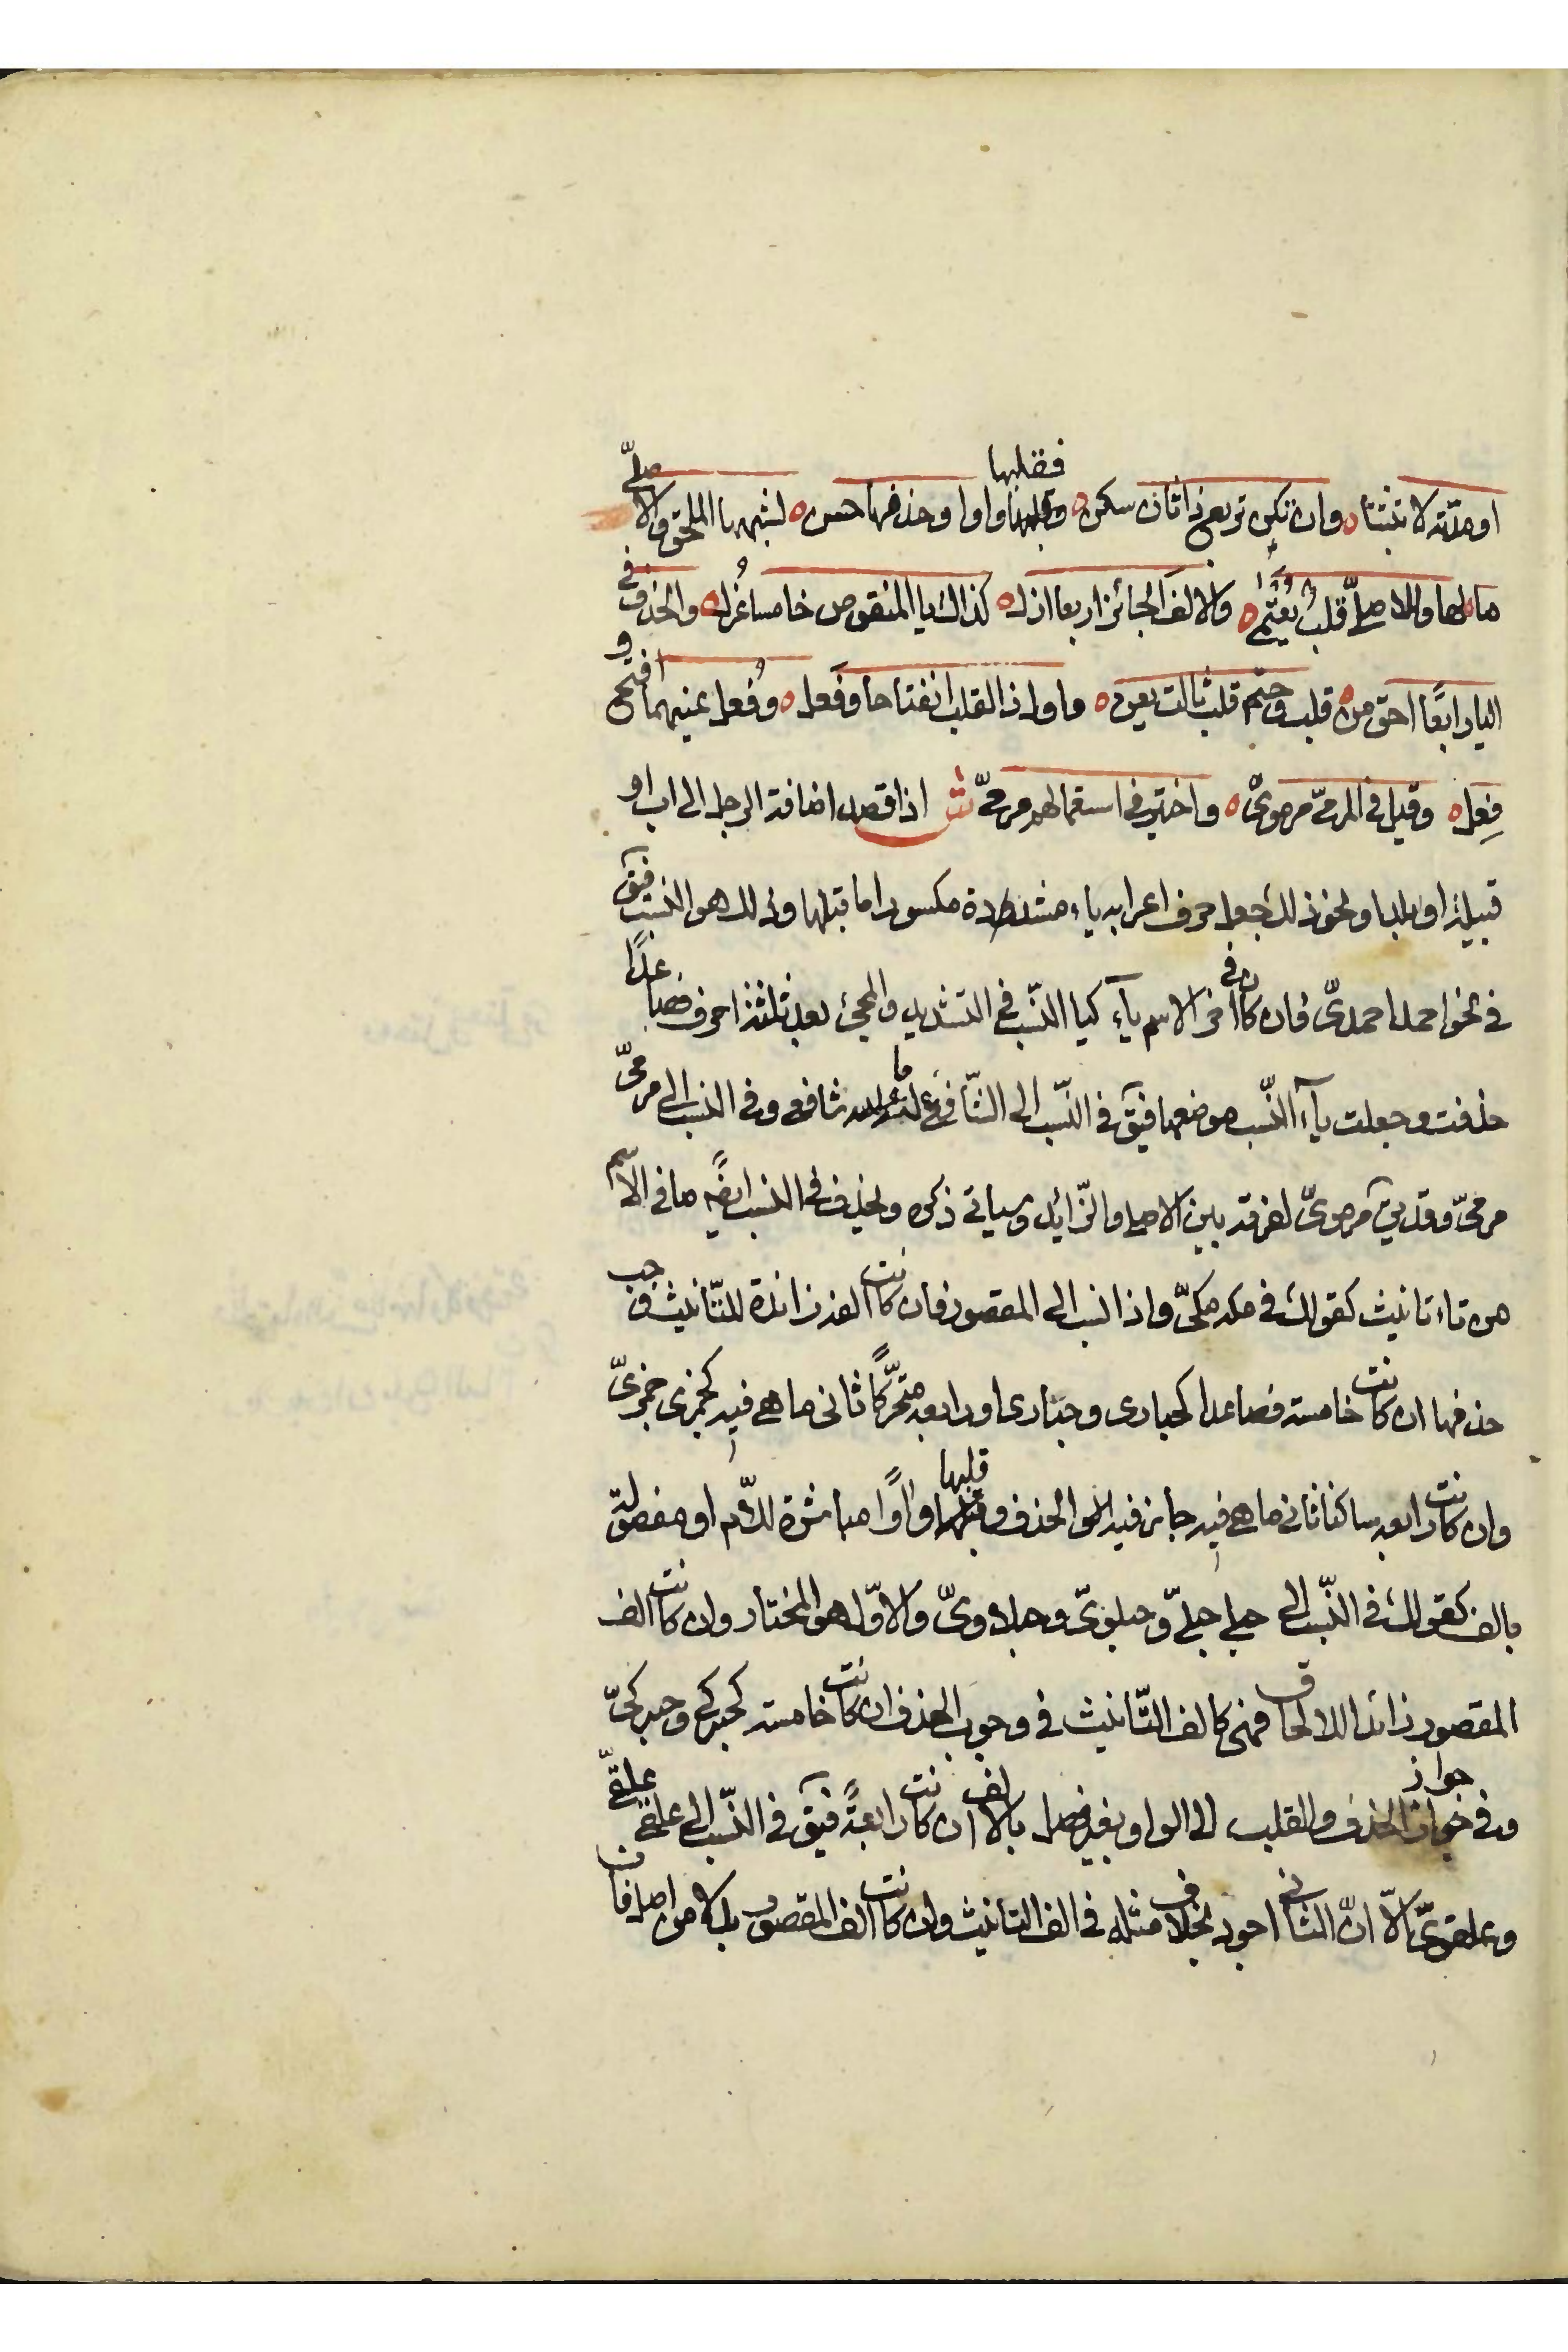 او مدّته لا تثبتا ه وان تكن تربع ذا ثان سكن ه وقلبها فقلبها واوا وحذفها حسن ه لشبهها الملحق والاصليّ
ما لها وللاصليّ قلب يعتمى ه والالف الجائز اربعا ازل ه كذاك يا المنقوص خامسا عُزل ه والحذف في
اليا رابعًا احق من ه قلب وحتم قلب ثالث يعن ه واول ذا القلب انفتاحا وفَعِل ه وفُعِل عينهما افتح و
فِعِل ه وقيل في المرميّ مرمويّ ه واختير في استعمالهم مرميّ ش اذا قصد اضافة الرجل الى اب او
قبيلة او بلد او نحو ذلك جعل حرف اعرابه ياء مشددة مكسورا ما قبلها وذلك هو النسب فيق
في نحو احمد احمديّ فان كان في اخر الاسم ياء كيا النّسب في التشديد والمجئ بعد ثلثة احرف فصاعدًا
حذفت وجعلت ياء النّسب موضعها فيق في النّسب الى الشّافعي ما شافعي وفي النسب الى مرميّ
مرميّ وقد يق مرمويّ تفرقة بين الاصل والزّائد وسياتي ذكره ويحذف في النسب ايضًا ما في الاسم
من تاء تانيث كقولك في مكه مكيّ واذا نسب الى المقصور فان كانت الفه زائدة للتّانيث وجب
حذفها ان كانت خامسة فصاعدا كحبارى وحبارى او رابعه متحرّكًا ثانى ما هي فيه كجمزى جمزيّ
وان كانت رابعه ساكنا ثاني ما هي فيه جاز فيه الحذف وقلبها قلبها واوًا مباشرة للاّم او مفصولة
بالف كقولك في النّسب الى حبلى حبليّ وحبلويّ وحبلاويّ والاوّل هو المختار وان كانت الف
المقصور زائدا للالحاق فهي كالف التّانيث في وجوب الحذف ان كانت خامسة كحبركى وحبركيّ
وفي جواز جواز الحذف والقلب الى الواو بغير فصل بالالف ان كانت رابعةً فيق في النّسب الى علقى علقيّ
وعلقويّ الاّ انّ الثاني اجود بخلاف مثله في الف التانيث وان كانت الف المقصور بدلا من اصل فان